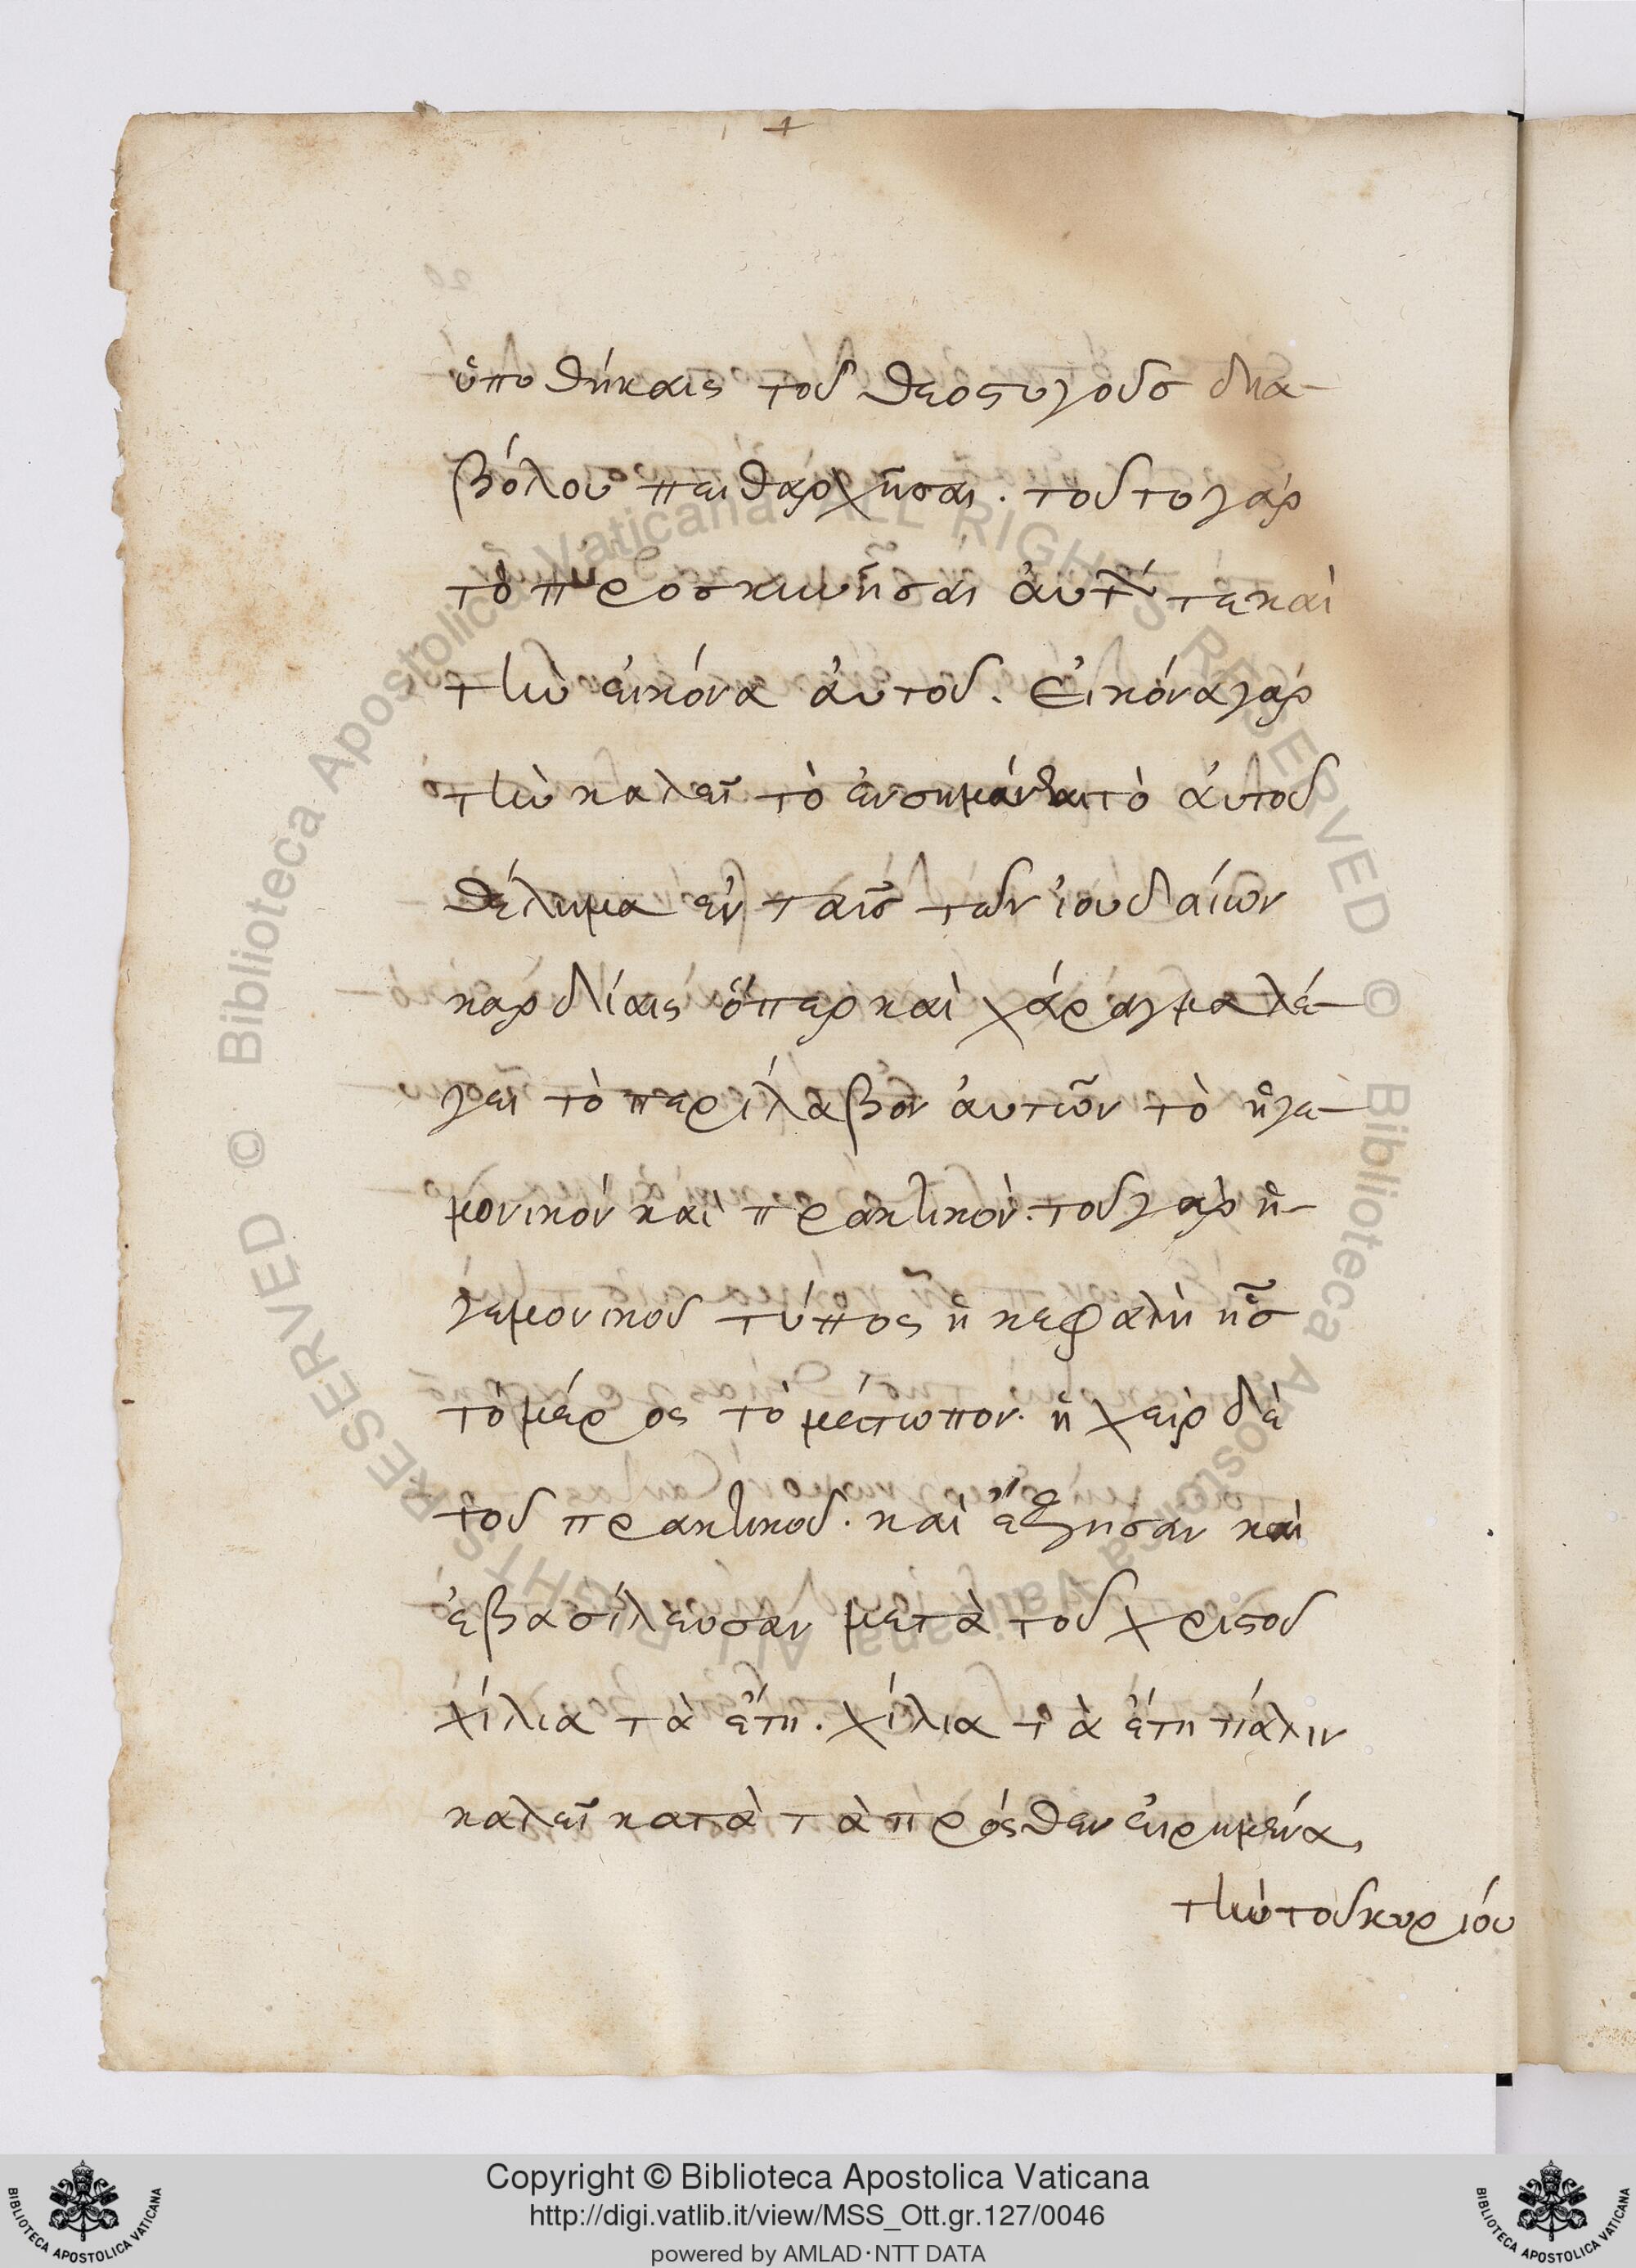 ὑποθήκαις τοῦ θεοστυγοῦσ δια-
βόλου πειθαρχῆσαι. τοῦτο γάρ
τὸ προσκυνῆσαι αὐτῶ τε καὶ
τὴν εἰκόνα ἀυτοῦ. Εἰκόνα γάρ
τὴν καλεῖ τὸ ἐνσημάνθαι τὸ ἀυτοῦ
θέλημα ἐν ταῖσ τῶν ἰουδαίων
καρδίαις ὅπερ καὶ χάραγμα λέ-
γει τὸ περιλαβὸν ἀυτῶν τὸ ἡγε-
μονικόν καὶ πρακτικόν. τοῦ γὰρ ἡ-
γεμονικοῦ τύπος ἡ κεφαλὴ ἧσ
τὸ μέρος τὸ μέτωπον. ἡ χεὶρ δὲ
τοῦ πρακτικοῦ. καὶ ἔζησαν καὶ
ἐβασίλευσαν μετὰ τοῦ χριστοῦ
χίλια τὰ ἔτη. χίλια τὰ ἔτη πάλιν
καλεῖ κατὰ τὰ πρόσθεν εἰρημένα,
τὴν τοῦ κυρίου
Copyright © Biblioteca Apostolica Vaticana
http://digi.vatlib.it/view/MSS_Ott.gr.127/0046
powered by AMLAD·NTT DATA
BIBLIOTECA APOSTOLICA VATICANA
BIBLIOTECA APOSTOLICA VATICANA
© Biblioteca Apostolica Vaticana ALL RIGHTS RESERVED © Biblioteca Apostolica Vaticana ALL RIGHTS RESERVED